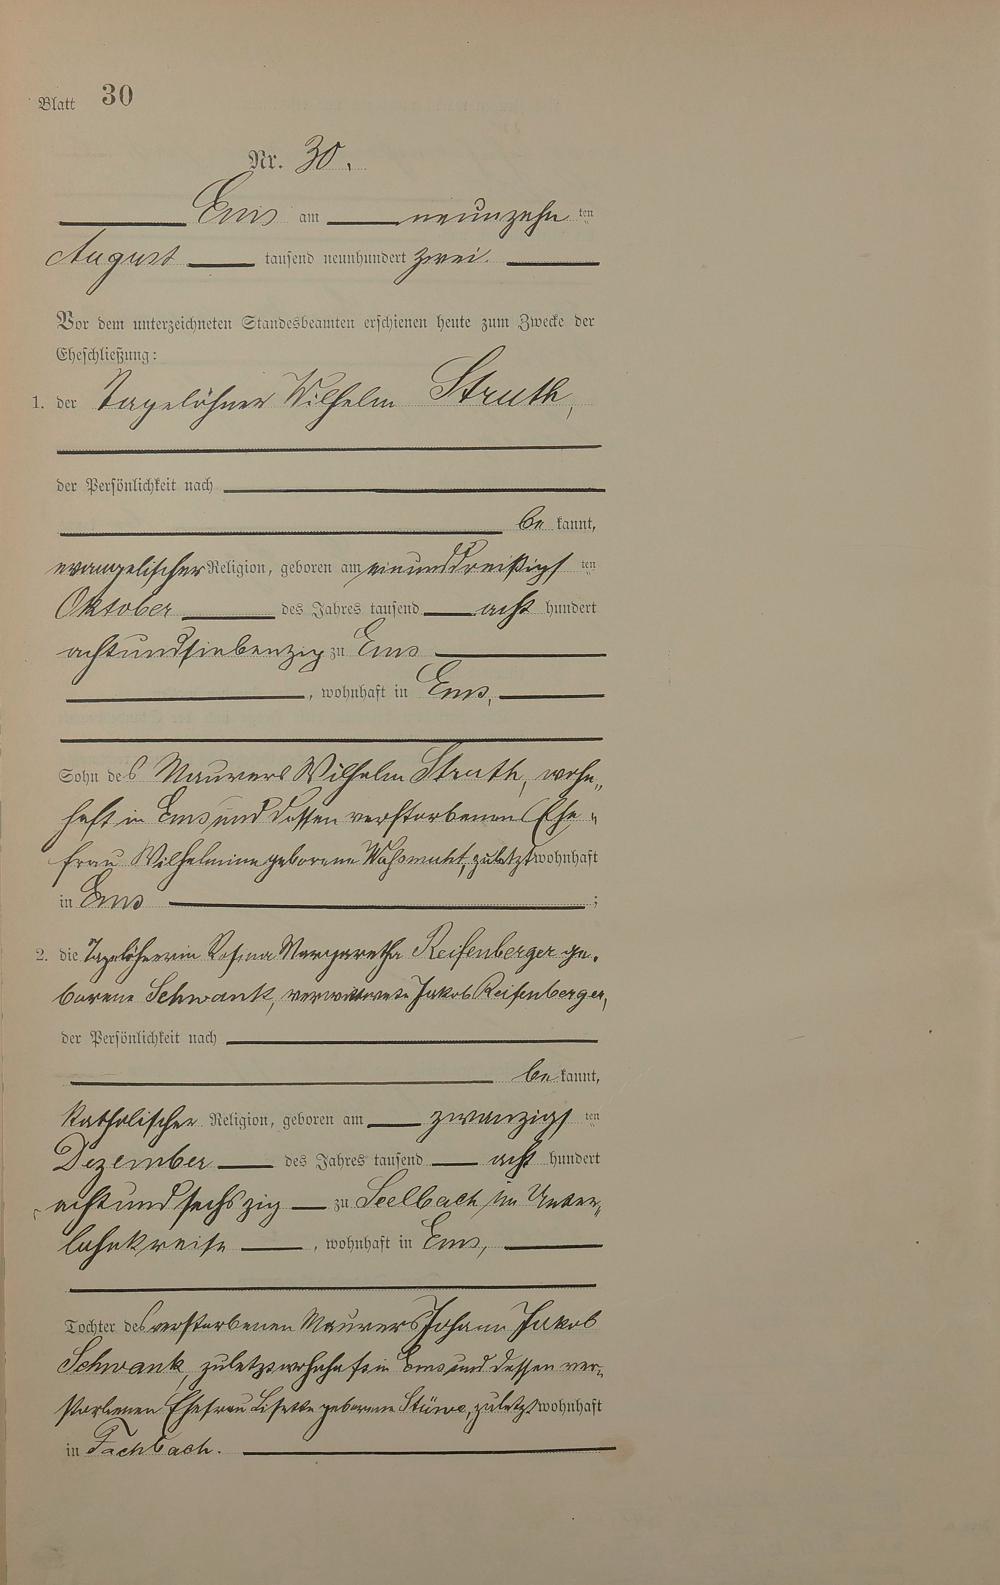 Blatt 30
Nr. 30.
Ems am neunzehn ten
August tausend neunhundert zwei.
Vor dem unterzeichneten Standesbeamten erschienen heute zum Zwecke der
Eheschließung:
1. der Tagelöhner Wilhelm Struth,
der Persönlichkeit nach
be kannt,
evangelischer Religion, geboren am einunddreißigs ten
Oktober des Jahres tausend acht hundert
achtundsiebenzig zu Ems
, wohnhaft in Ems,
Sohn des Maurers Wilhelm Struth, wohn„
haft in Ems und dessen verstorbenen Ehe„
frau Wilhelmine geborene zuletzt wohnhaft
in Ems ;
2. die Tagelöhnerin Rosina Margaretha Reifenberger ge„
borene Schwank, verwitwete Jakob Reifenberger,
der Persönlichkeit nach
be kannt,
katholischer Religion, geboren am zwanzigs ten
Dezember des Jahres tausend acht hundert
achtundsechszig zu Seelbach im Unter„
lahnkreise , wohnhaft in Ems,
Tochter des verstorbenen Maurers Johann Jakob
Schwank, zuletzt wohnhaft in Ems und dessen ver„
storbenen Ehefrau Lisette geborene zuletzt wohnhaft
in Fachbach.